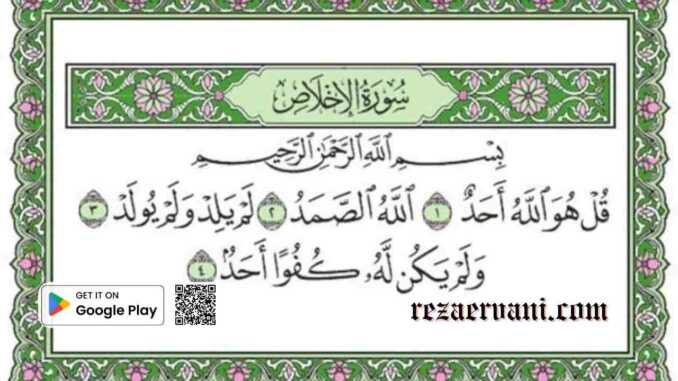 سُورَةُ الإِخْلَاصِ
بِسْمِ اللَّهِ الرَّحْمَٰنِ الرَّحِيمِ
قُلْ هُوَ اللَّهُ أَحَدٌ ١ اللَّهُ الصَّمَدُ ٢ لَمْ يَلِدْ وَلَمْ يُولَدْ ٣
وَلَمْ يَكُن لَّهُۥ كُفُوًا أَحَدٌۢ ٤
GET IT ON
Google Play
rezaervani.com